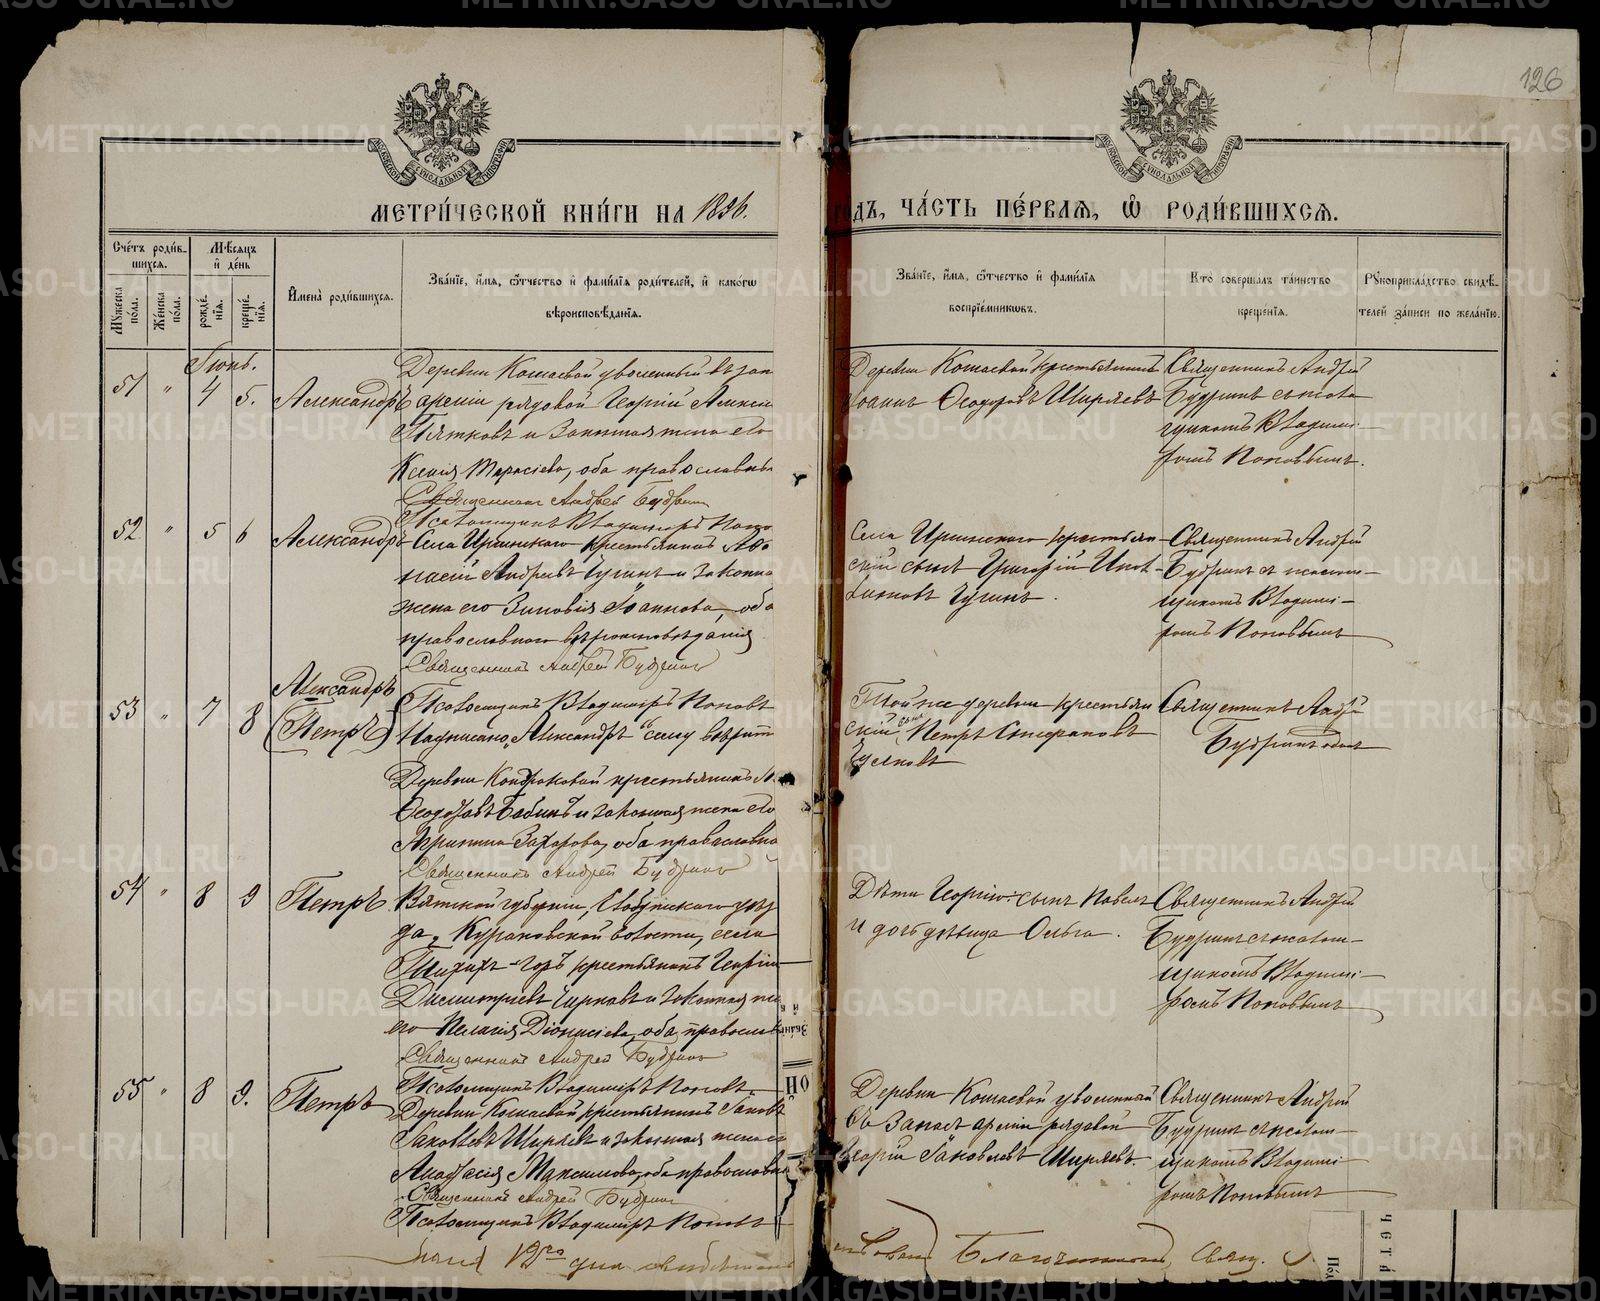 126
МОСКОВСКОЙ СУНОДАЛЬНОЙ ТИПОГРАФІИ
МОСКОВСКОЙ СУНОДАЛЬНОЙ ТИПОГРАФІИ
МЕТРИ́ЧЕСКОЙ КНИ́ГИ НА 1896.
ГОДЪ, ЧА́СТЬ ПЕ́РВАЯ, Ѡ҆ РОДИ́ВШИХСЯ.
Сче́тъ роди́в-
шихся.
Мѣ́сяцъ
и҆ де́нь
Му́жеска по́ла.
Же́нска по́ла.
рожде́нїя.
креще́нїя.
И҆мена̀ роди́вшихся.
Зва́нїе, и҆́мя, ѻ҆́тчество и҆ фами́лїя роди́телей, и҆ како́гѡ
вѣроисповѣ́данїя.
Зва́нїе, и҆́мя, ѻ҆́тчество и҆ фами́лїя
воспрїе́мникѡвъ.
Кто̀ соверша́лъ та́инство
креще́нїя.
Рꙋкоприкла́дство свидѣ́-
телей за́писи по жела́нїю.
Іюнь.
51 " 4 5. Александръ
Деревни Кошаевой уволенный въ зап
арміи рядовой Георгій Алексѣ
Пятковъ и законная жена его
Ксенія Тарасіева, оба православны
Священникъ Андрей Будринъ
Псаломщикъ Владиміръ Попо
Деревни Кошаевой крестьянинъ
Іоаннъ Ѳеодоровъ Ширяевъ
Священникъ Андрей
Будринъ съ псалом
щикомъ Владимі-
ромъ Поповымъ.
52 " 5 6 Александръ
Села Иргинскаго крестьянинъ Аѳа
насій Андреевъ Чугинъ и законна
жена его Зиновія Іоаннова, оба
православнаго вѣроисповѣданія
Священникъ Андрей Будринъ
Псаломщикъ Владиміръ Поповъ
Села Иргинскаго крестьян-
скій сынъ Григорій
Чугинъ.
Священникъ Андрей
Будринъ съ псалом-
щикомъ Владимі-
ромъ Поповымъ
53 " 7 8
Александръ
(Петръ)
Надписано „Александръ“ сему вѣрить
Деревни крестьянинъ
Ѳеодоровъ Бабинъ и законная жена его
Агрипина Захарова, оба православна
Священникъ Андрей Будринъ
Той же деревни крестьян
скій сынъ Петръ Стефановъ
Священникъ Андрей
Будринъ одинъ
54 " 8 9 Петръ
Вятской губерніи, уѣз
да, волости, села
крестьянинъ Георгій
Димитріевъ и законная же
его Пелагія Діонисіева, оба православ
Священникъ Андрей Будринъ
Псаломщикъ Владиміръ Поповъ
Дѣти Георгія: сынъ Павелъ
и дочь дѣвица Ольга.
Священникъ Андрей
Будринъ съ псалом-
щикомъ Владимі-
ромъ Поповымъ
55 " 8 9. Петръ
Деревни Кошаевой крестьянинъ Іаковъ
Іаковлевъ Ширяевъ и законная жена е
Анастасія Максимова, оба православн
Священникъ Андрей Будринъ
Псаломщикъ Владиміръ Поповъ
Деревни Кошаевой уволенный
въ запасъ арміи рядовой
Георгій Іаковлевъ Ширяевъ.
Священникъ Андрей
Будринъ съ псалом-
щикомъ Владимі-
ромъ Поповымъ
12го дня
Благочинный, Свящ.
METRIKI.GASO-URAL.RU